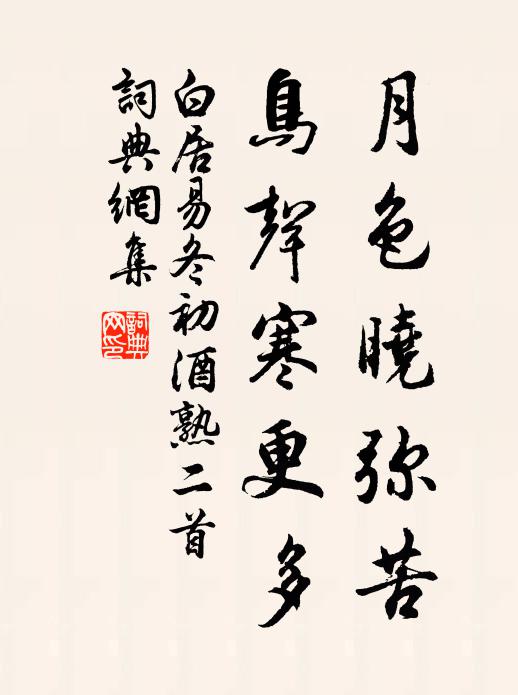 月色曉弥苦
鳥聲寒更多
白居易冬初酒熟二首
詞典網集
詞典網印